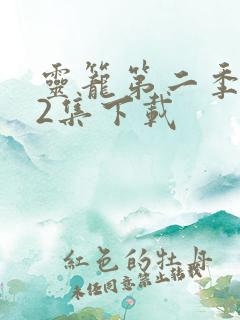 靈籠第二季
2集下載
紅色的牡丹
未经同意禁止転載